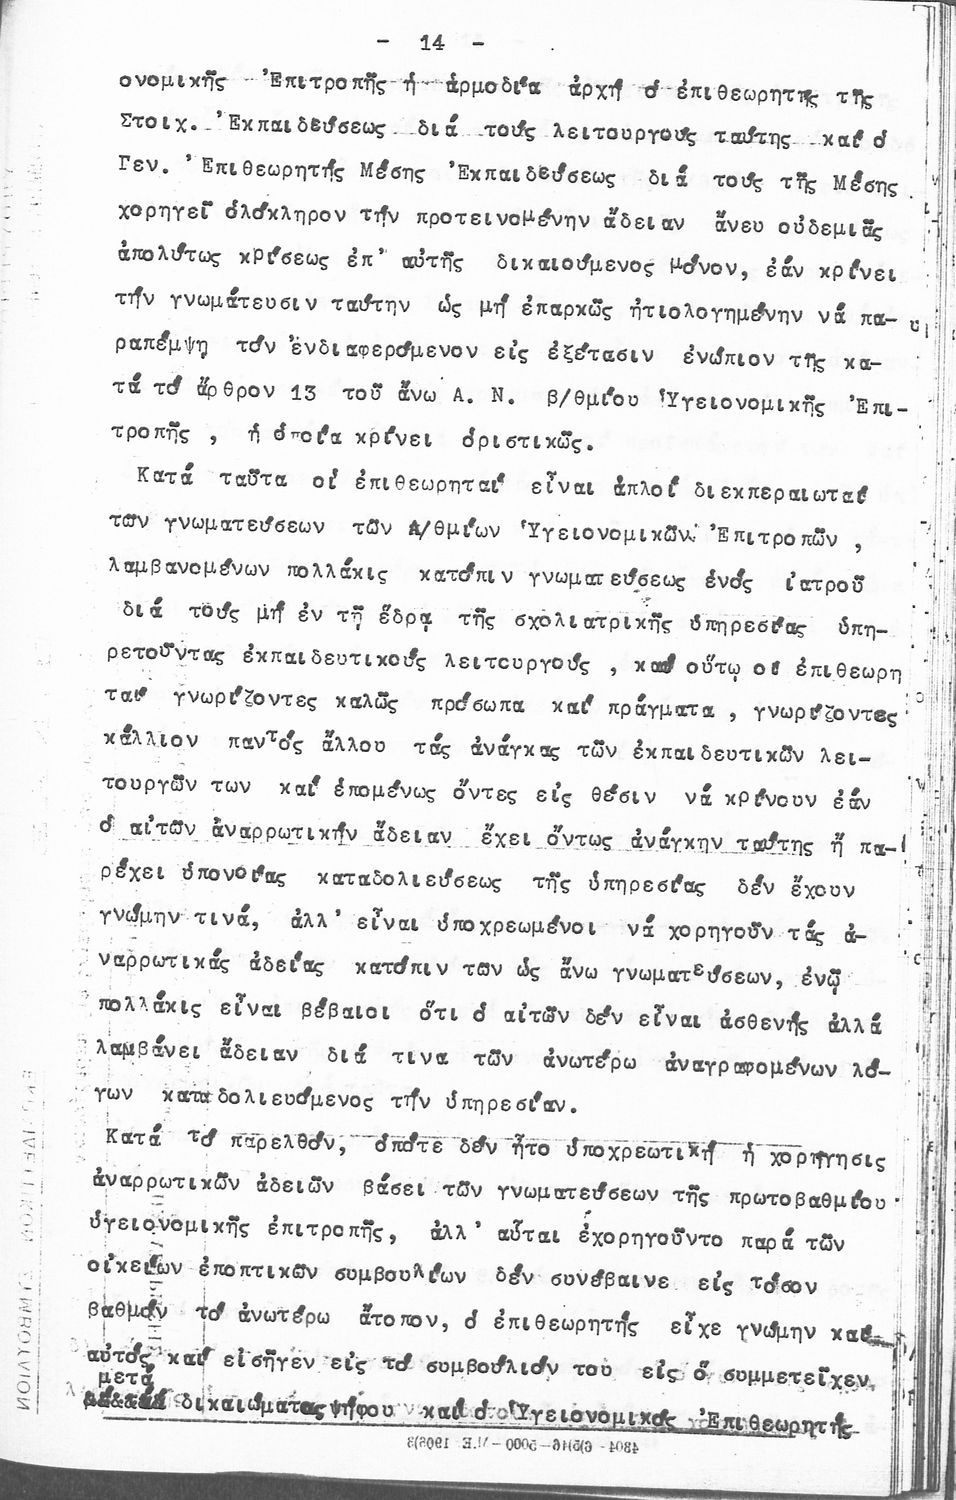 - 14 -
ονομικῆς Ἐπιτροπῆς ἡ ἁρμοδία ἀρχή ὁ ἐπιθεωρητής τῆς
Στοιχ. Ἐκπαιδεύσεως διά τούς λειτουργούς ταύτης καί ὁ
Γεν. Ἐπιθεωρητής Μέσης Ἐκπαιδεύσεως διά τούς τῆς Μέσης
χορηγεῖ ὁλόκληρον τήν προτεινομένην ἄδειαν ἄνευ οὐδεμιᾶς
ἀπολύτως κρίσεως ἐπ' αὐτῆς δικαιούμενος μόνον, ἐάν κρίνει
τήν γνωμάτευσιν ταύτην ὡς μή ἐπαρκῶς ἠτιολογημένην νά πα-
ραπέμψῃ τόν ἐνδιαφερόμενον εἰς ἐξέτασιν ἐνώπιον τῆς κα-
τά τό ἄρθρον 13 τοῦ ἄνω Α. Ν. β/θμίου Ὑγειονομικῆς Ἐπι-
τροπῆς , ἡ ὁποία κρίνει ὁριστικῶς.
Κατά ταῦτα οἱ ἐπιθεωρηταί εἶναι ἁπλοί διεκπεραιωταί
τῶν γνωματεύσεων τῶν Α/θμίων Ὑγειονομικῶν Ἐπιτροπῶν ,
λαμβανομένων πολλάκις κατόπιν γνωματεύσεως ἑνός ἰατροῦ
διά τούς μή ἐν τῇ ἕδρᾳ τῆς σχολιατρικῆς ὑπηρεσίας ὑπη-
ρετοῦντας ἐκπαιδευτικούς λειτουργούς , καί οὕτῳ οἱ ἐπιθεωρη
ταί γνωρίζοντες καλῶς πρόσωπα καί πράγματα , γνωρίζοντες
κάλλιον παντός ἄλλου τάς ἀνάγκας τῶν ἐκπαιδευτικῶν λει-
τουργῶν των καί ἑπομένως ὄντες εἰς θέσιν νά κρίνουν ἐάν
ὁ αἰτῶν ἀναρρωτικήν ἄδειαν ἔχει ὄντως ἀνάγκην ταύτης ἤ πα-
ρέχει ὑπονοίας καταδολιεύσεως τῆς ὑπηρεσίας δέν ἔχουν
γνώμην τινά, ἀλλ' εἶναι ὑποχρεωμένοι νά χορηγοῦν τάς ἀ-
ναρρωτικάς ἀδείας κατόπιν των ὡς ἄνω γνωματεύσεων, ἐνῷ
πολλάκις εἶναι βέβαιοι ὅτι ὁ αἰτῶν δέν εἶναι ἀσθενής ἀλλά
λαμβάνει ἄδειαν διά τινα τῶν ἀνωτέρω ἀναγραφομένων λό-
γων καταδολιευόμενος τήν ὑπηρεσίαν.
Κατά τό παρελθόν, ὁπότε δέν ἦτο ὑποχρεωτική ἡ χορήγησις
ἀναρρωτικῶν ἀδειῶν βάσει τῶν γνωματεύσεων τῆς πρωτοβαθμίου
ὑγειονομικῆς ἐπιτροπῆς, ἀλλ' αὗται ἐχορηγοῦντο παρά τῶν
οἰκείων ἐποπτικῶν συμβουλίων δέν συνέβαινε εἰς τόσον
βαθμόν τό ἀνωτέρω ἄτοπον, ὁ ἐπιθεωρητής εἶχε γνώμην καί
αὐτός καί εἰσῆγεν εἰς τό συμβούλιόν του εἰς ὅ συμμετεῖχεν
μετά
δικαιώματος ψήφου καί ὁ Ὑγειονομικός Ἐπιθεωρητής